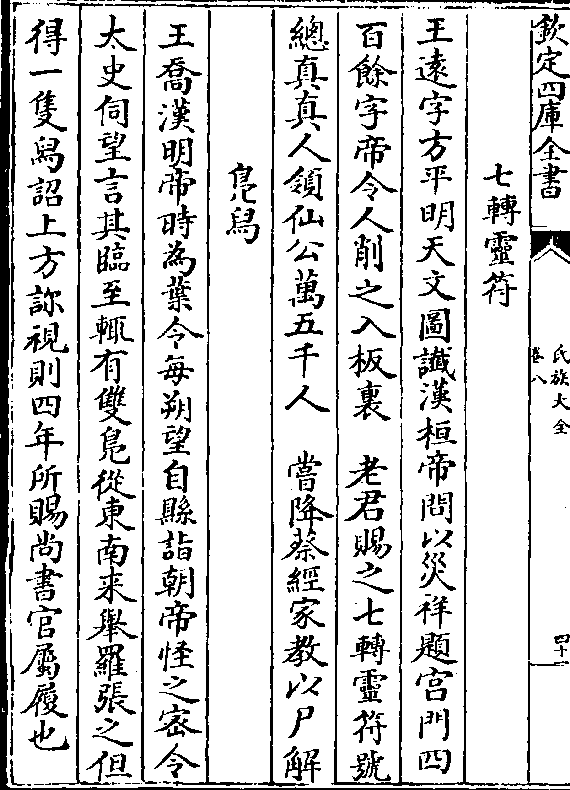 欽定四庫全書
氏族大全
卷八
四十一
七轉靈符
王遠字方平明天文圖讖漢桓帝問以災祥題宮門四
百餘字帝令人削之入板裏　老君賜之七轉靈符號
總真真人領仙公萬五千人　嘗降蔡經家教以尸解
鳧舄
王喬漢明帝時為葉令每朔望自縣詣朝帝怪之密令
太史伺望言其臨至輒有雙鳧從東南来舉羅張之但
得一隻舄詔上方診視則四年所賜尚書官屬履也